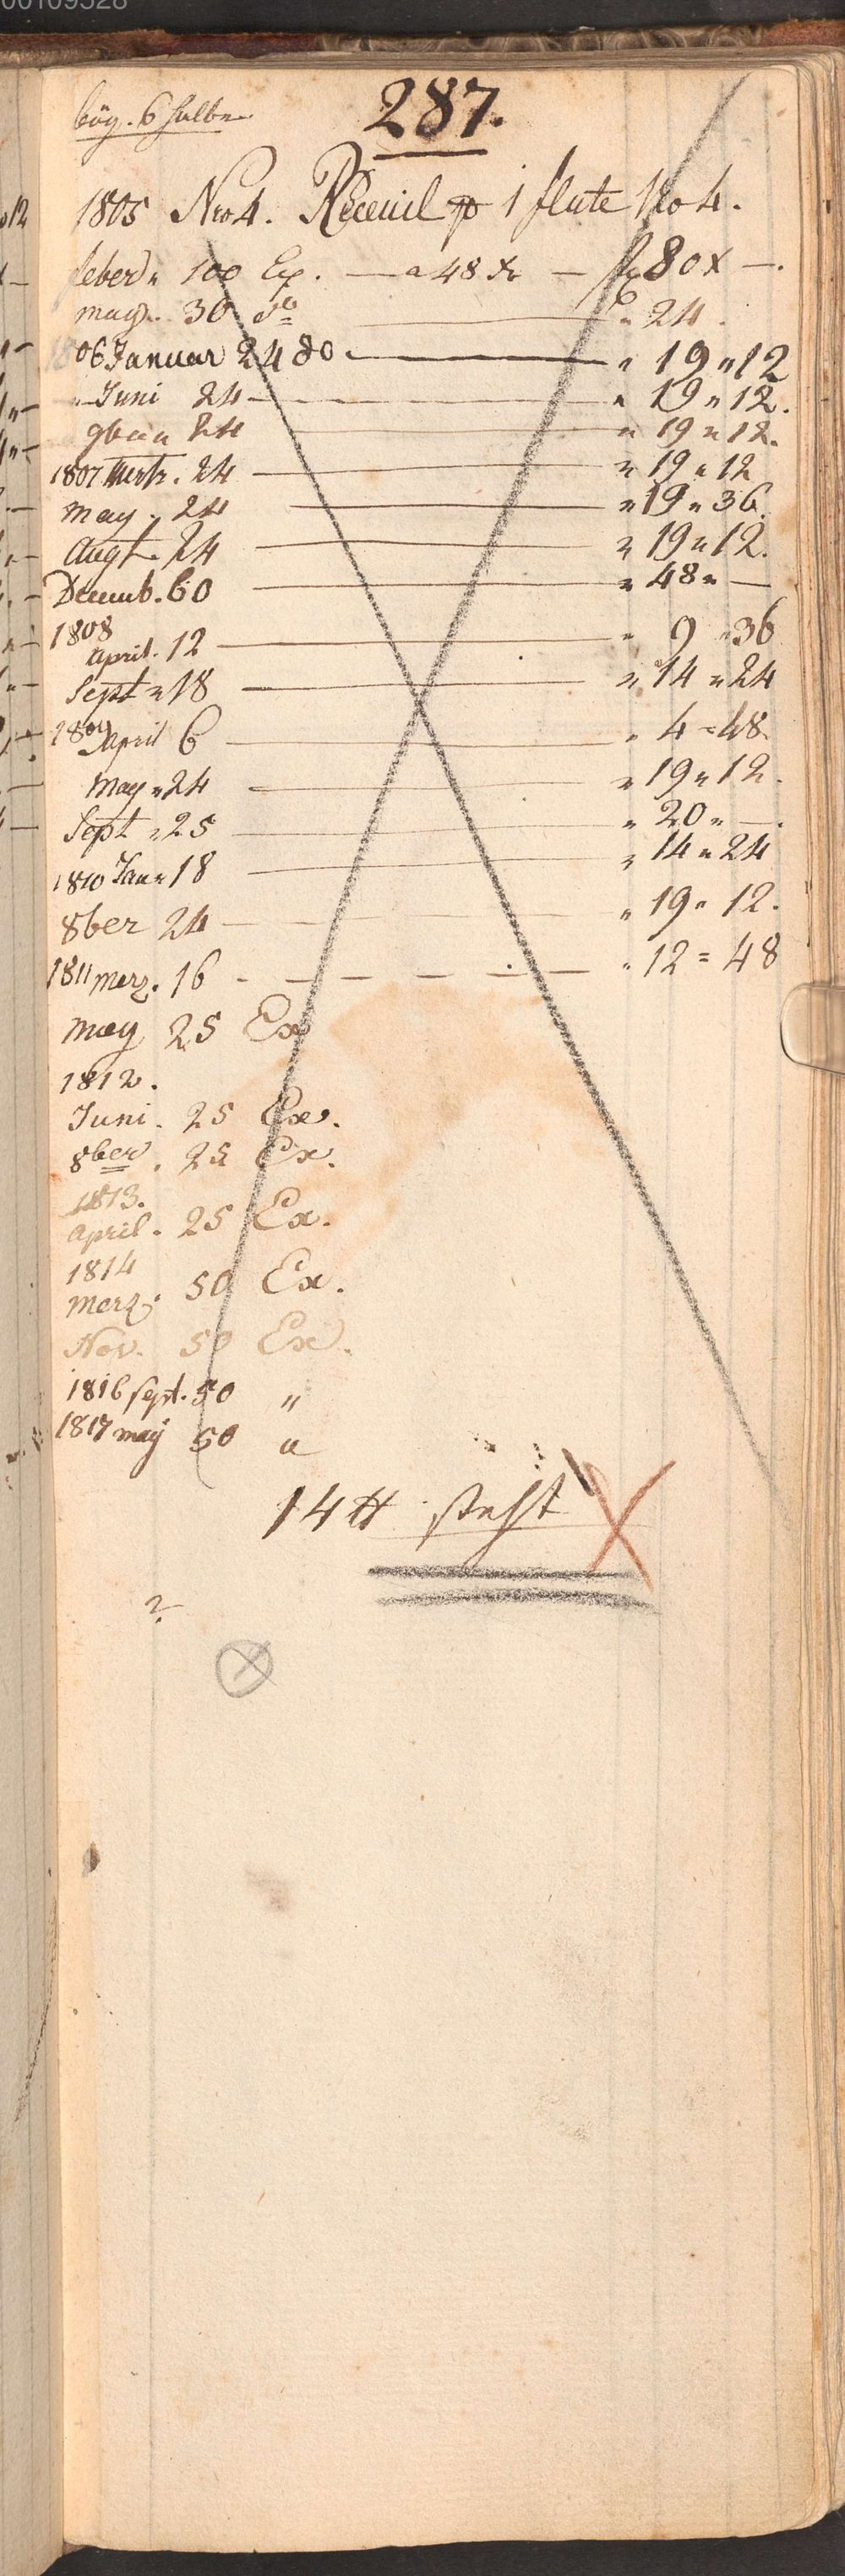 00109528
287.
bög. 6 halbe
1805 Nro 4. Receuil p 1 flute No 4.
feber " 100 Ex. — a 48 Xr — f 80 X —.
may. 30 do — " 24.
1806 Januar 24 do. — " 19 " 12
" Juni 24 — " 19 " 12.
9ber " 24 — " 19 " 12.
1807 Mertz. 24 — " 19 " 12
may. 24 — " 19 " 36.
Augt. 24 — " 19 " 12.
Decemb. 60 — " 48 " —
1808
april. 12 — " 9 " 36
Sept " 18 — " 14 " 24
1809 April 6 — " 4 = 48
May " 24 — " 19 " 12.
Sept " 25 — " 20 " —.
1810 Jan " 18 — " 14 " 24
8ber 24 — " 19 " 12.
1811 merz. 16 - — — — — " 12 = 48
may 25 Ex
1812.
Juni. 25 Ex.
8ber. 25 Ex.
1813.
april. 25 Ex.
1814
merz. 50 Ex.
Nov. 50 Ex.
1816 sept. 50 "
1817 may 50 "
14 # steht X
?